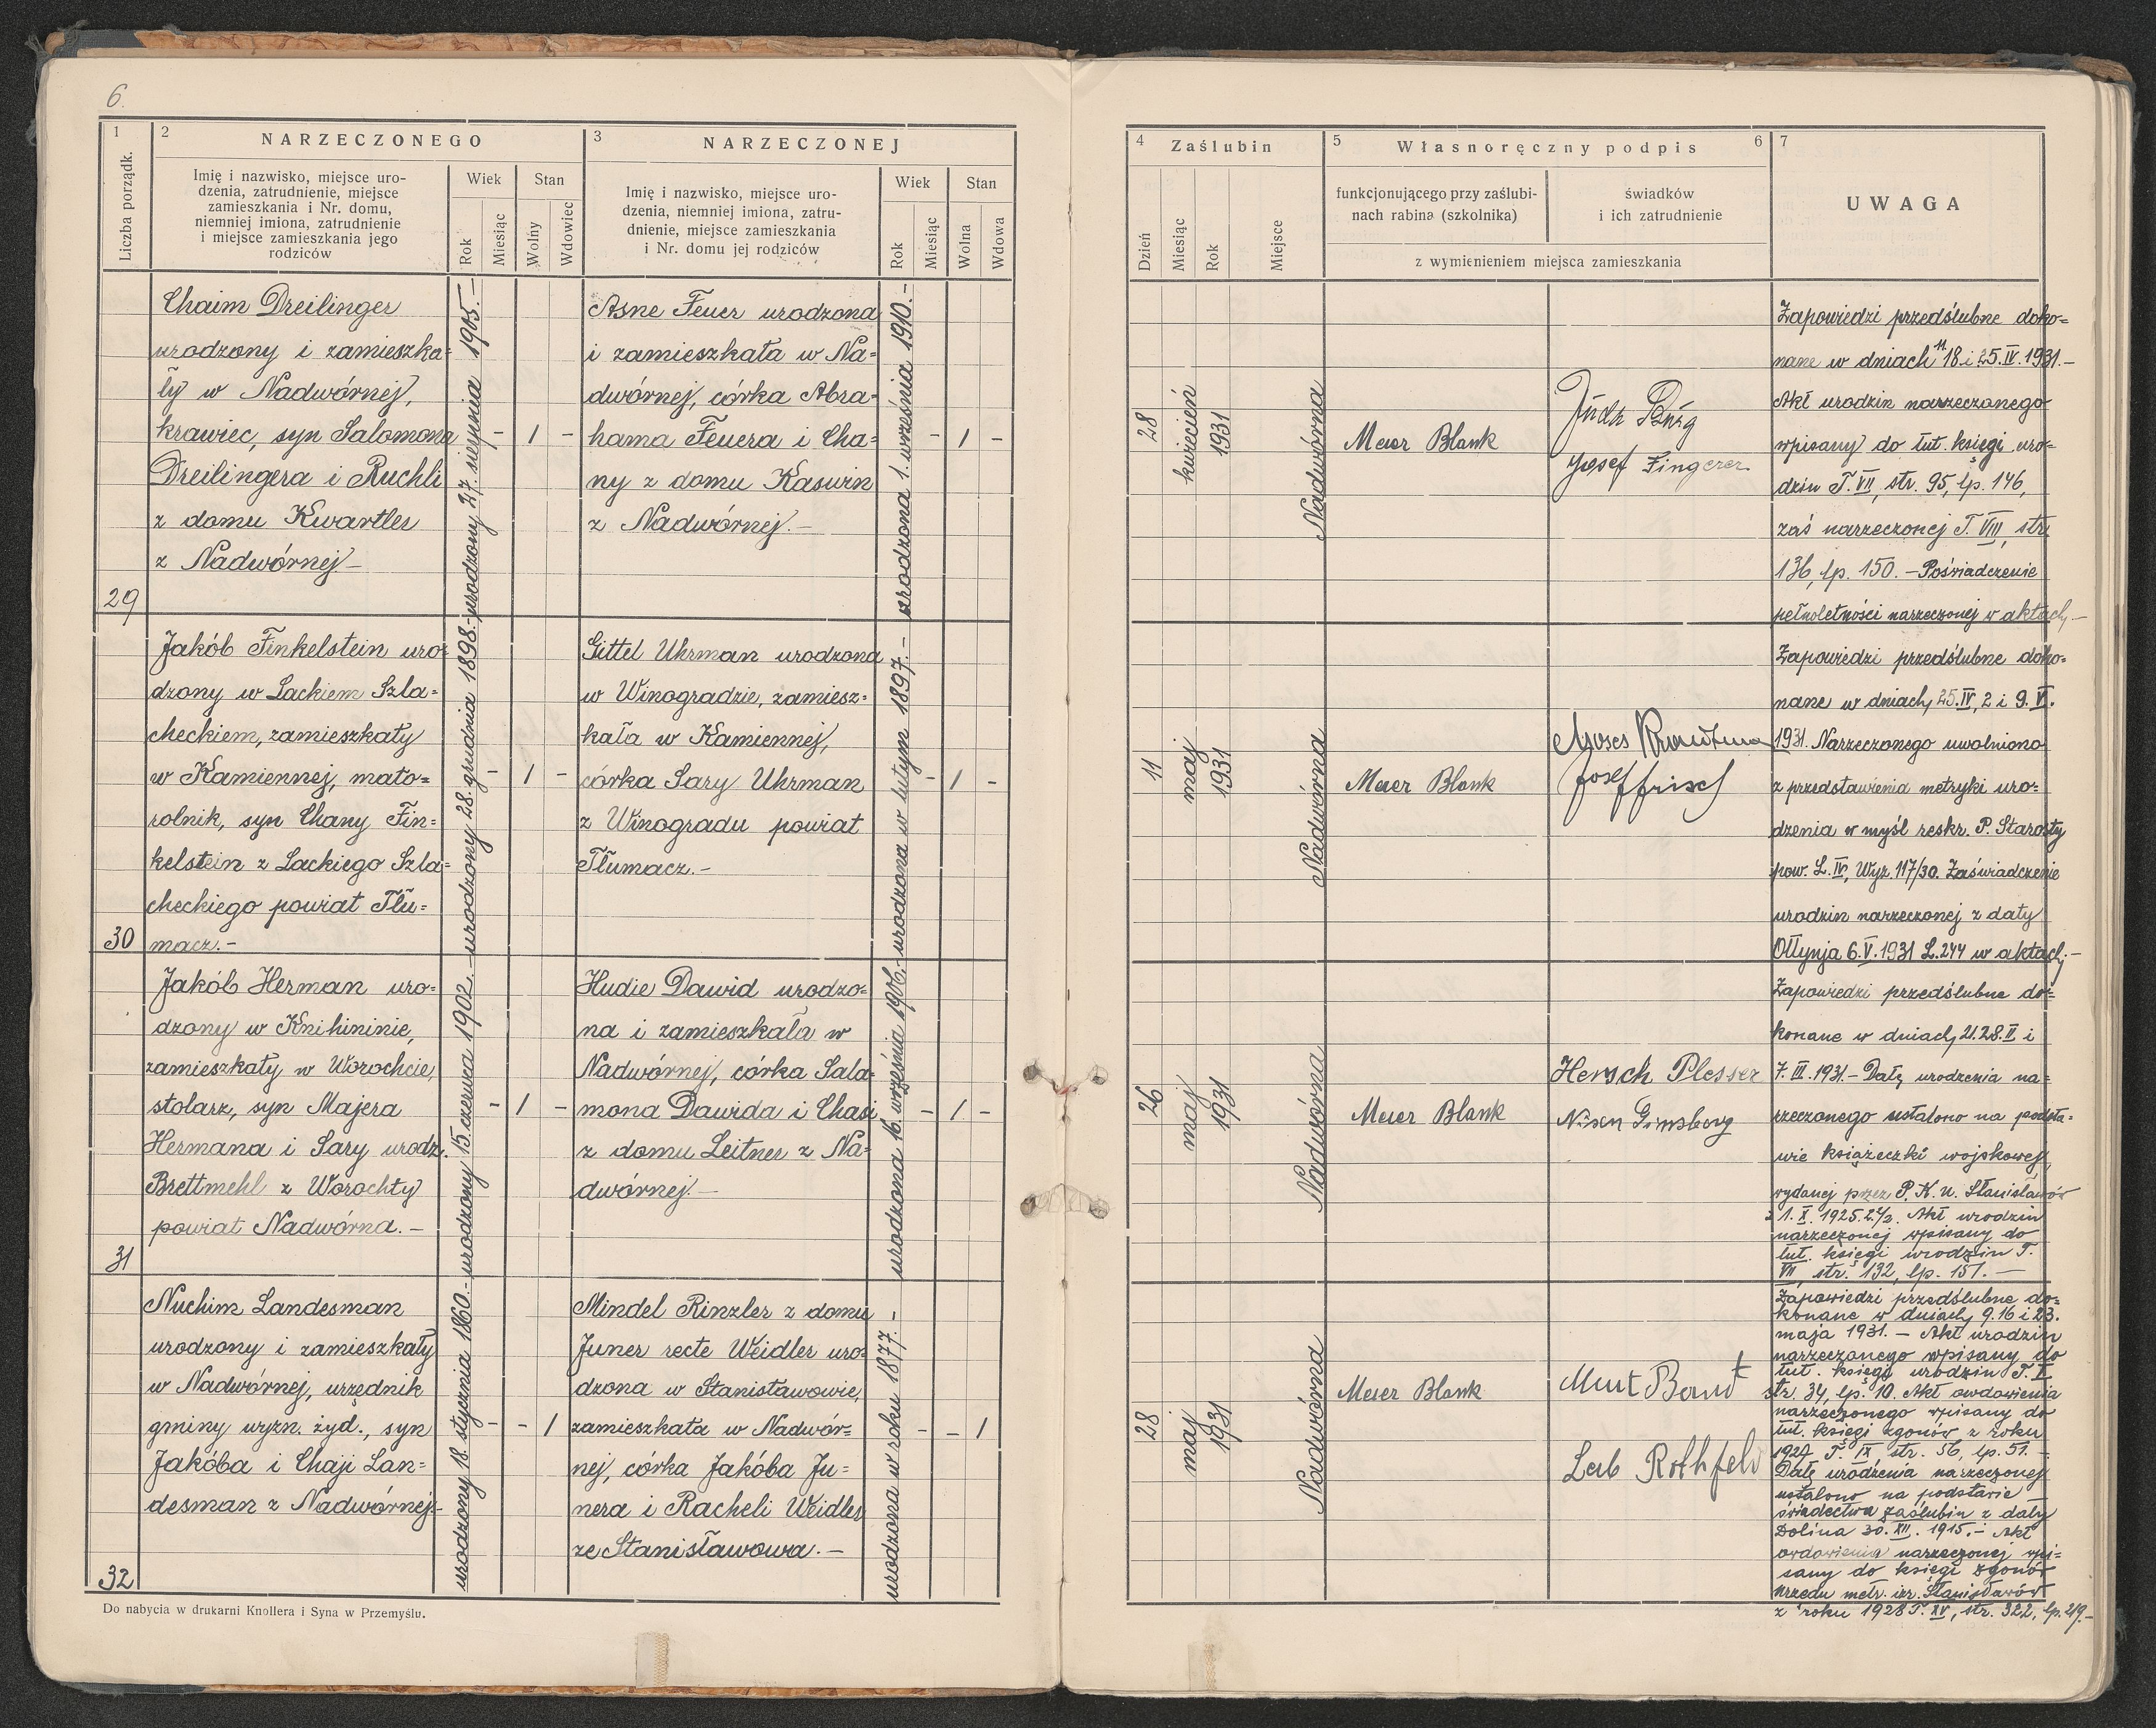 6.
1
2
NARZECZONEGO
3
NARZECZONEJ
Liczba porządk.
Imię i nazwisko, miejsce uro-
dzenia, zatrudnienie, miejsce
zamieszkania i Nr. domu,
niemniej imiona, zatrudnienie
i miejsce zamieszkania jego
rodziców
Wiek
Stan
Rok
Miesiąc
Wolny
Wdowiec
Imię i nazwisko, miejsce uro-
dzenia, niemniej imiona, zatru-
dnienie, miejsce zamieszkania
i Nr. domu jej rodziców
Wiek
Stan
Rok
Miesiąc
Wolna
Wdowa
29
Chaim Dreilinger
urodzony i zamieszka=
ły w Nadwórnej,
krawiec, syn Salomona
Dreilingera i Ruchli
z domu Kwartler
z Nadwórnej.–
urodzony 27. sierpnia 1905.–
– 1 –
Asne Feuer urodzona
i zamieszkała w Na=
dwórnej, córka Abra=
hama Feuera i Cha=
ny z domu Kaswin
z Nadwórnej.–
urodzona 1. września 1910.–
– 1 –
30
Jakób Finkelstein uro=
dzony w Lackiem Szla=
checkiem, zamieszkały
w Kamiennej, mało=
rolnik, syn Chany Fin=
kelstein z Lackiego Szla=
checkiego powiat Tłu=
macz.–
urodzony 28. grudnia 1898.–
– 1 –
Gittel Uhrman urodzona
w Winogradzie, zamiesz=
kała w Kamiennej,
córka Sary Uhrman
z Winogradu powiat
Tłumacz.–
urodzona w lutym 1897.–
– 1 –
31
Jakób Herman uro=
dzony w Knihininie,
zamieszkały w Worochcie,
stolarz, syn Majera
Hermana i Sary urodz.
Brettmehl z Worochty
powiat Nadwórna.–
urodzony 15. czerwca 1902.
– 1 –
Hudie Dawid urodzo=
na i zamieszkała w
Nadwórnej, córka Sala=
mona Dawida i Chasi
z domu Leitner z Na=
dwórnej.–
urodzona 16. września 1906.–
– 1 –
32
Nuchim Landesman
urodzony i zamieszkały
w Nadwórnej, urzędnik
gminy wyzn. żyd., syn
Jakóba i Chaji Lan=
desman z Nadwórnej.
urodzony 18. stycznia 1860.–
– – 1
Mindel Rinzler z domu
Juner recte Weidler uro=
dzona w Stanisławowie,
zamieszkała w Nadwór=
nej, córka Jakóba Ju=
nera i Racheli Weidler
ze Stanisławowa.–
urodzona w roku 1877.–
– – 1
Do nabycia w drukarni Knollera i Syna w Przemyślu.
4
Zaślubin
5
Własnoręczny podpis
6
7
Dzień
Miesiąc
Rok
Miejsce
funkcjonującego przy zaślubi-
nach rabina (szkolnika)
świadków
i ich zatrudnienie
z wymienieniem miejsca zamieszkania
UWAGA
28
kwiecień
1931
Nadwórna
Meier Blank
Josef Fingerer
Zapowiedzi przedślubne doko=
nane w dniach 11 18 i 25.IV.1931.–
Akt urodzin narzeczonego
wpisany do tut. księgi uro=
dzin T. VII, str. 95, lp. 146,
zaś narzeczonej T. VIII, str.
136, lp. 150.–Poświadczenie
pełnoletności narzeczonej w aktach.–
11
maj
1931
Nadwórna
Meier Blank
Moses
Josef Frisch
Zapowiedzi przedślubne doko=
nane w dniach 25.IV, 2 i 9.V.
1931. Narzeczonego uwolniono
z przedstawienia metryki uro=
dzenia w myśl reskr. P. Starosty
pow. L. IV, Wyz. 117/30. Zaświadczenie
urodzin narzeczonej z daty
Ottynja 6.V.1931 L.244 w aktach.–
26
maj
1931
Nadwórna
Meier Blank
Hersch Plesser
Nisen Ginsberg
Zapowiedzi przedślubne do=
konane w dniach 21.28.II i
7.III.1931.– Datę urodzenia na=
rzeczonego ustalono na podsta=
wie książeczki wojskowej,
wydanej przez P.K.U. Stanisławów
1.X.1925. Akt urodzin
narzeczonej wpisany do
tut. księgi urodzin T.
VII, str. 132, lp. 151.–
28
maj
1931
Nadwórna
Meier Blank
Leib Rothfeld
Zapowiedzi przedślubne do=
konane w dniach 9.16 i 23.
maja 1931.– Akt urodzin
narzeczonego wpisany do
tut. księgi urodzin T. I
str. 34, lp. 10. Akt owdowienia
narzeczonego wpisany do
tut. księgi zgonów z roku
T. IX str. 56, lp. 51.–
Datę urodzenia narzeczonej
ustalono na podstawie
świadectwa zaślubin z daty
Dolina 30.XII.1915.– Akt
owdowienia narzeczonej wpi=
sany do księgi zgonów
urzędu metr. izr. Stanisławów
z roku 1928 T. XV, str. 322, lp. 219.–